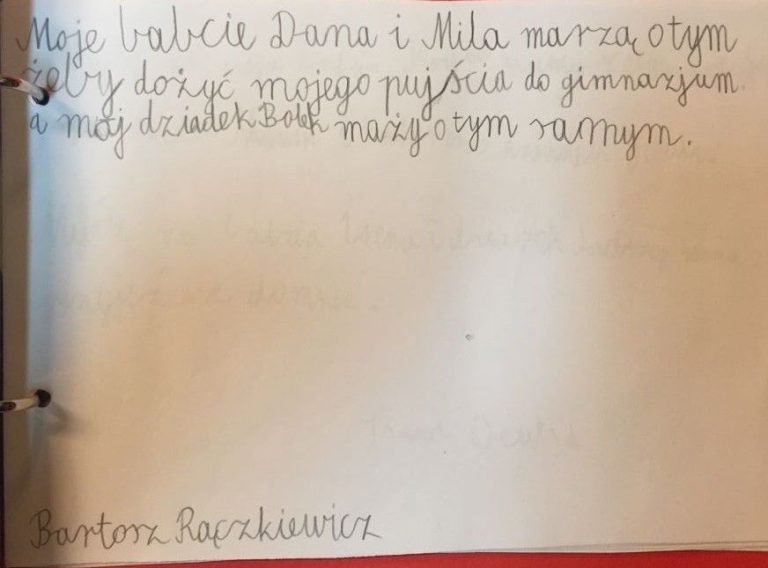 Moje babcie Dana i Mila marzą otym
żeby dożyć mojego pujścia do gimnazjum.
a mój dziadek Bolek maży otym samym.
Bartosz Rączkiewicz